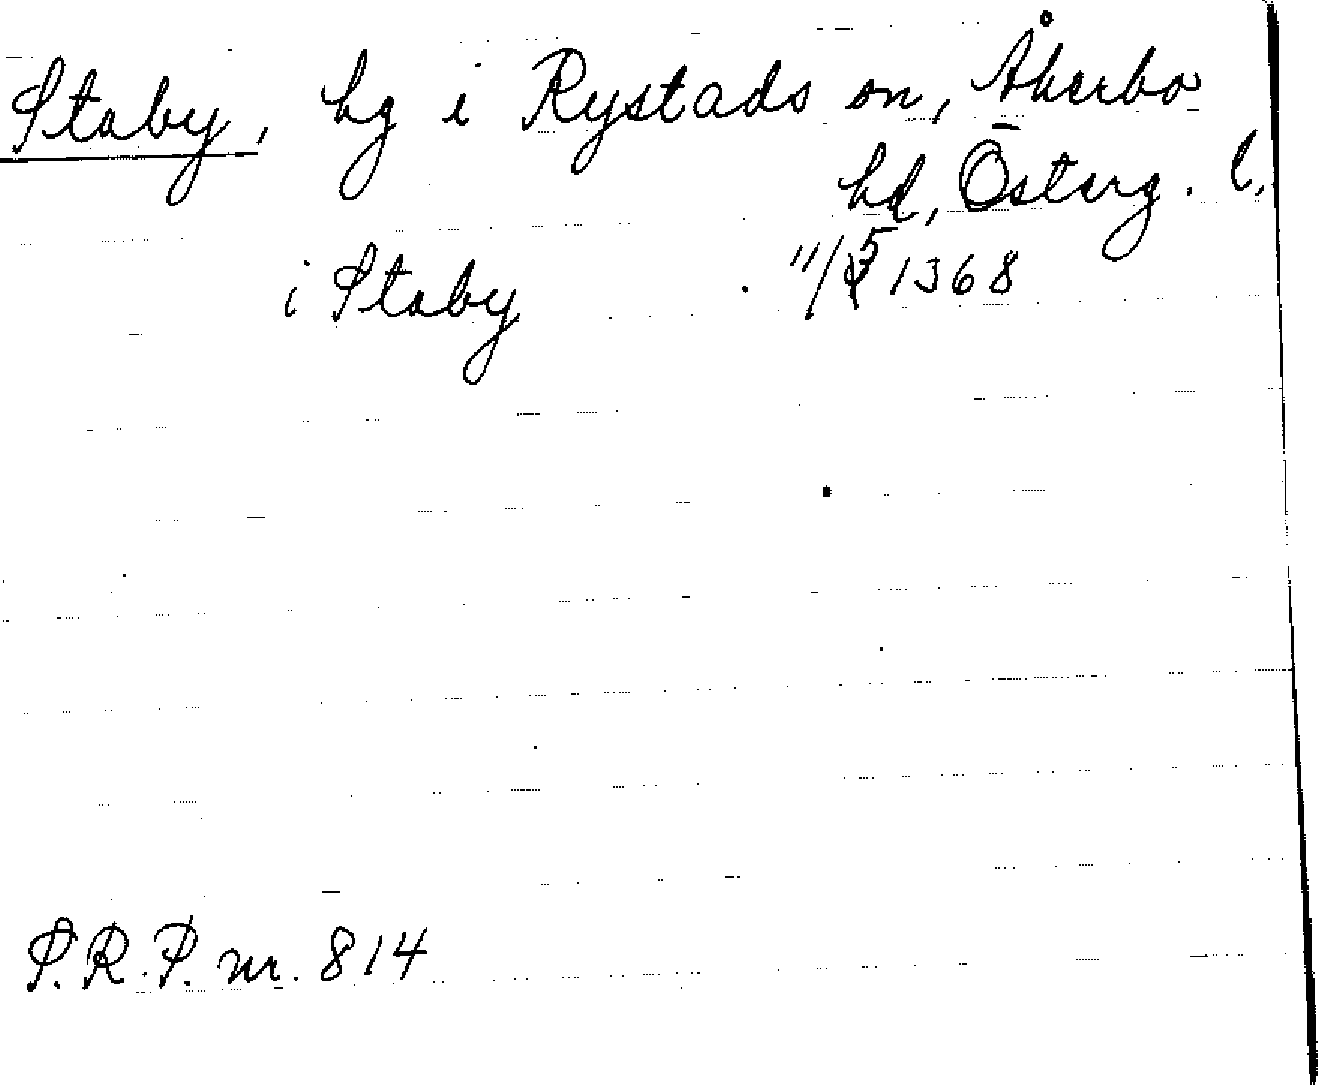 Staby, hg i Rystads sn, Åkerbo
hd, Österg. l.
i Staby 11/5 1368
P.R.P. nr. 814